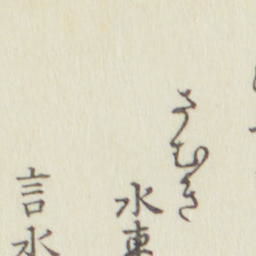 さむき
水
言水